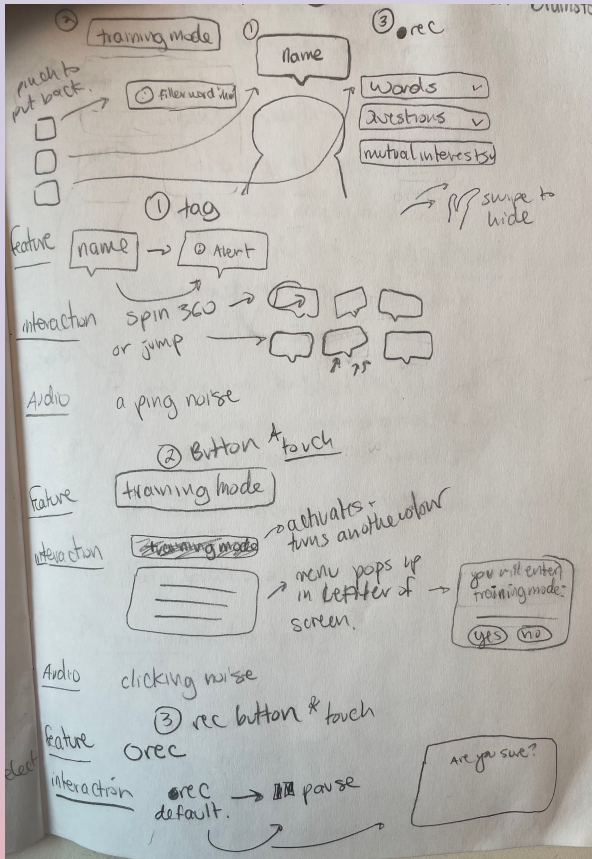 ②
training mode
①
name
③ rec
pinch to
put back.
filler word
words
Questions
mutual interests
swipe to
hide
① tag
feature
name
Alert
interaction
spin 360
or jump
Audio
a ping noise
② Button * touch
Feature
training mode
interaction
training mode
activates -
turns another colour
menu pops up
in center of
screen.
you will enter
training mode:
yes no
Audio
clicking noise
③ rec button * touch
feature
Orec
interaction
rec
default.
pause
Are you sure?
elect